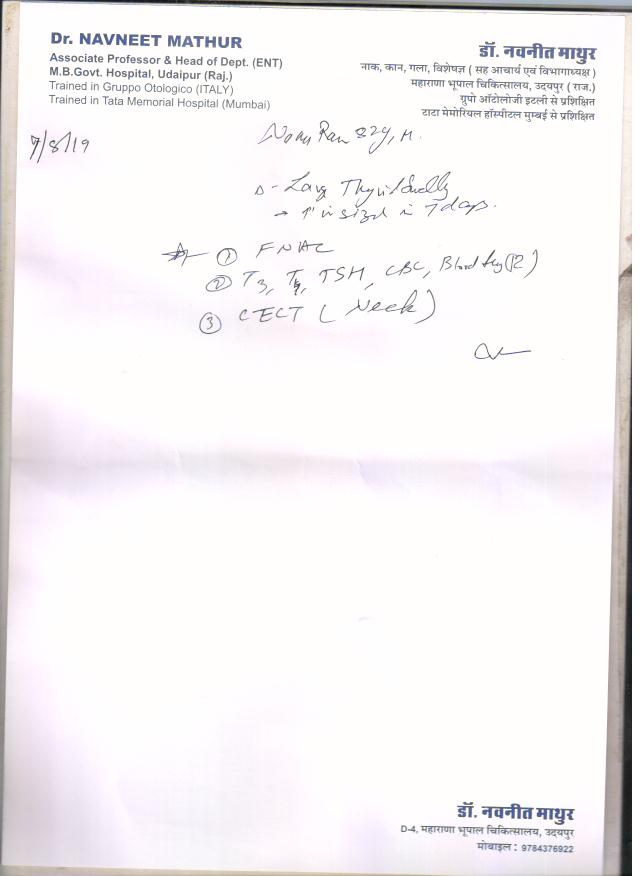 Dr. NAVNEET MATHUR
Associate Professor & Head of Dept. (ENT)
M.B.Govt. Hospital, Udaipur (Raj.)
Trained in Gruppo Otologico (ITALY)
Trained in Tata Memorial Hospital (Mumbai)
डॉ. नवनीत माथुर
नाक, कान, गला, विशेषज्ञ ( सह आचार्य एवं विभागाध्यक्ष )
महाराणा भूपाल चिकित्सालय, उदयपुर ( राज.)
ग्रुपो ऑटोलोजी इटली से प्रशिक्षित
टाटा मेमोरियल हॉस्पीटल मुम्बई से प्रशिक्षित
7/8/19
Ram 82y, M.
Δ - Large Thyroid Swelling
→ ↑ in sized in 7 days.
① FNAC
② T3, T4, TSH, CBC, Blood (R)
③ CECT ( Neck )
डॉ. नवनीत माथुर
D-4, महाराणा भूपाल चिकित्सालय, उदयपुर
मोबाइल : 9784376922